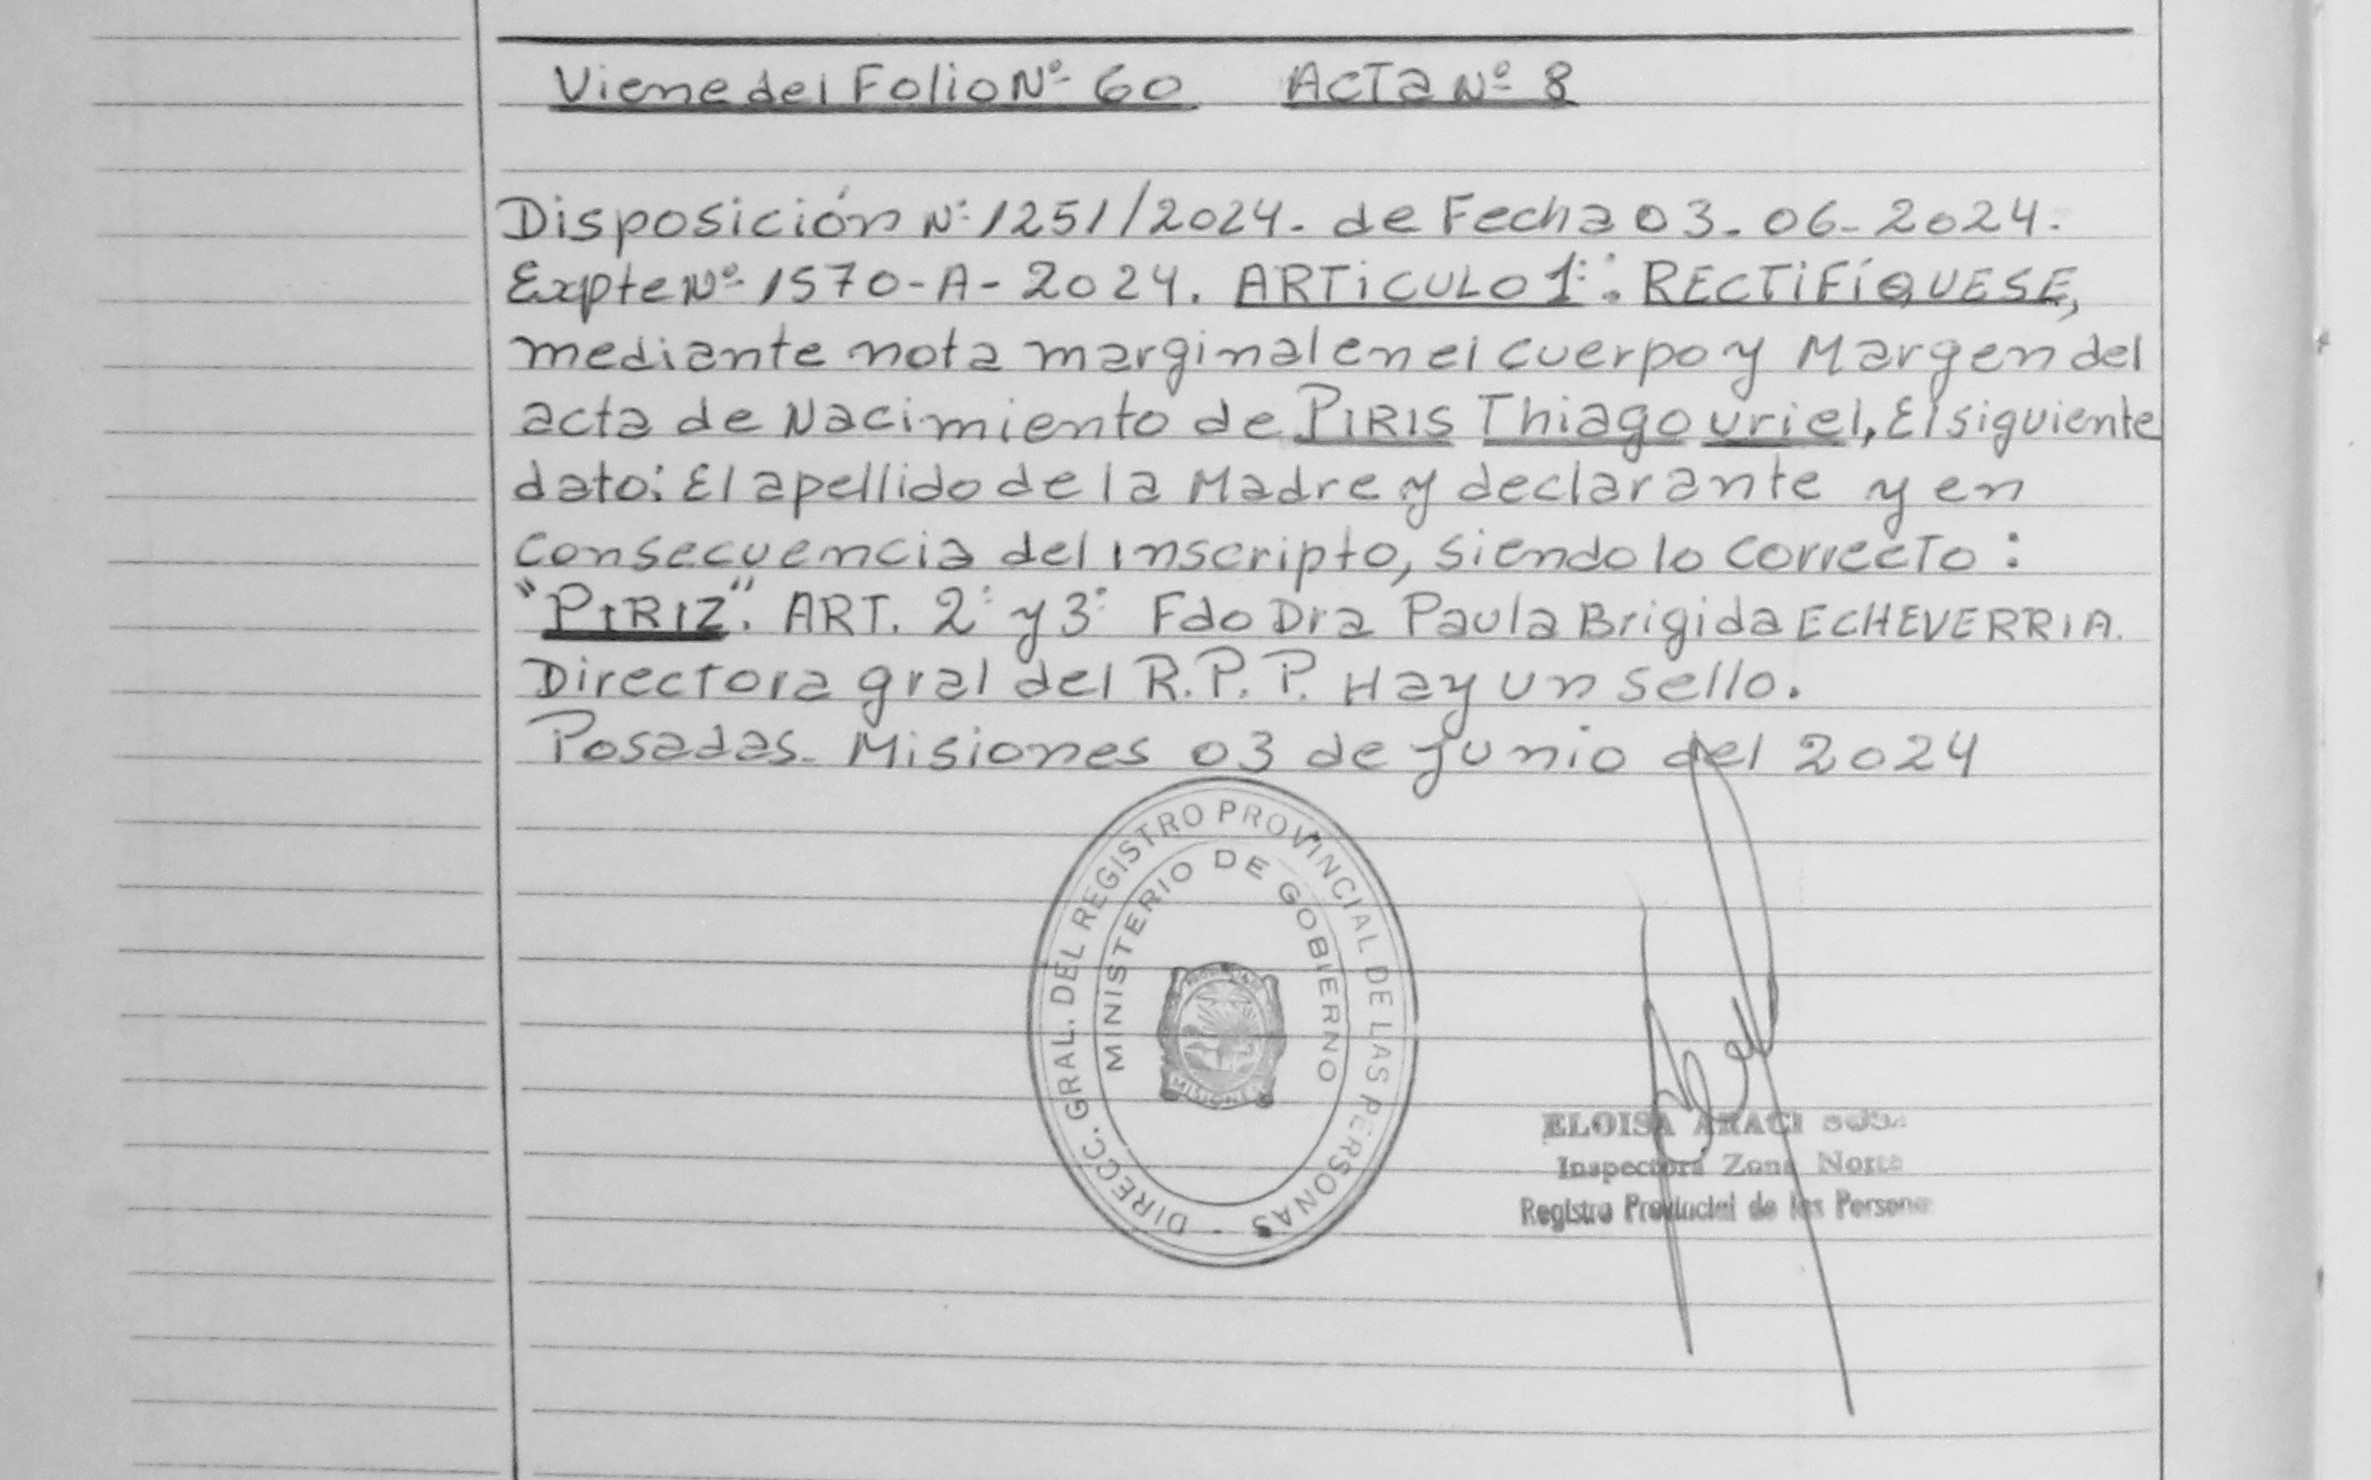 Viene del Folio Nº 60 ACTA Nº 8
Disposición Nº 1251/2024. de Fecha 03-06-2024.
Expte Nº 1570-A-2024. ARTiCULO 1º: RECTiFíQUESE,
mediante nota marginal en el cuerpo y Margen del
acta de Nacimiento de PIRIS Thiago uriel, El siguiente
dato: El apellido de la Madre y declarante y en
Consecuencia del inscripto, siendo lo correcto:
"PIRIZ". ART. 2º y 3º Fdo Dra Paula Brigida ECHEVERRIA.
Directora gral del R.P.P. Hay un sello.
Posadas. Misiones 03 de junio del 2024
DIRECC. GRAL. DEL REGISTRO PROVINCIAL DE LAS PERSONAS -
MINISTERIO DE GOBIERNO
MISIONES
ELOISA ARACI
Inspectora Zona Norte
Registro Provincial de las Persona